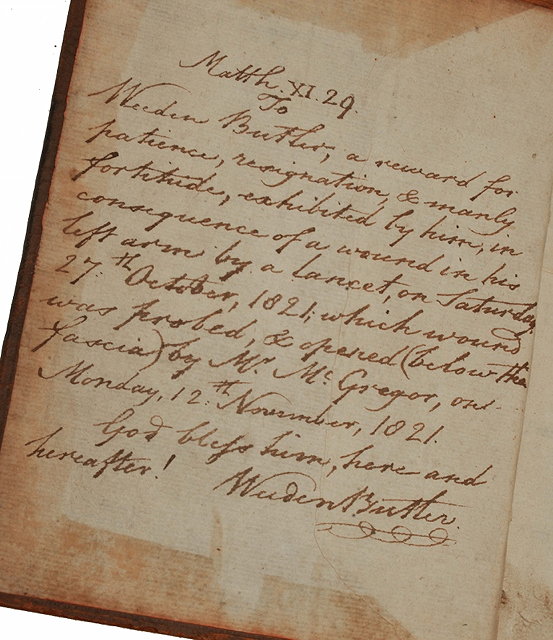 Matth. XI. 29.
To
Weeden Butler, a reward for
patience, resignation, & manly
fortitude, exhibited by him, in
consequence of a wound in his
left arm by a lancet, on Saturday,
27.th October, 1821; which wound
was probed, & opened (below the
fascia) by Mr. Mc. Gregor, on
Monday, 12.th November, 1821.
God bless him, here and
hereafter!
Weeden Butler.